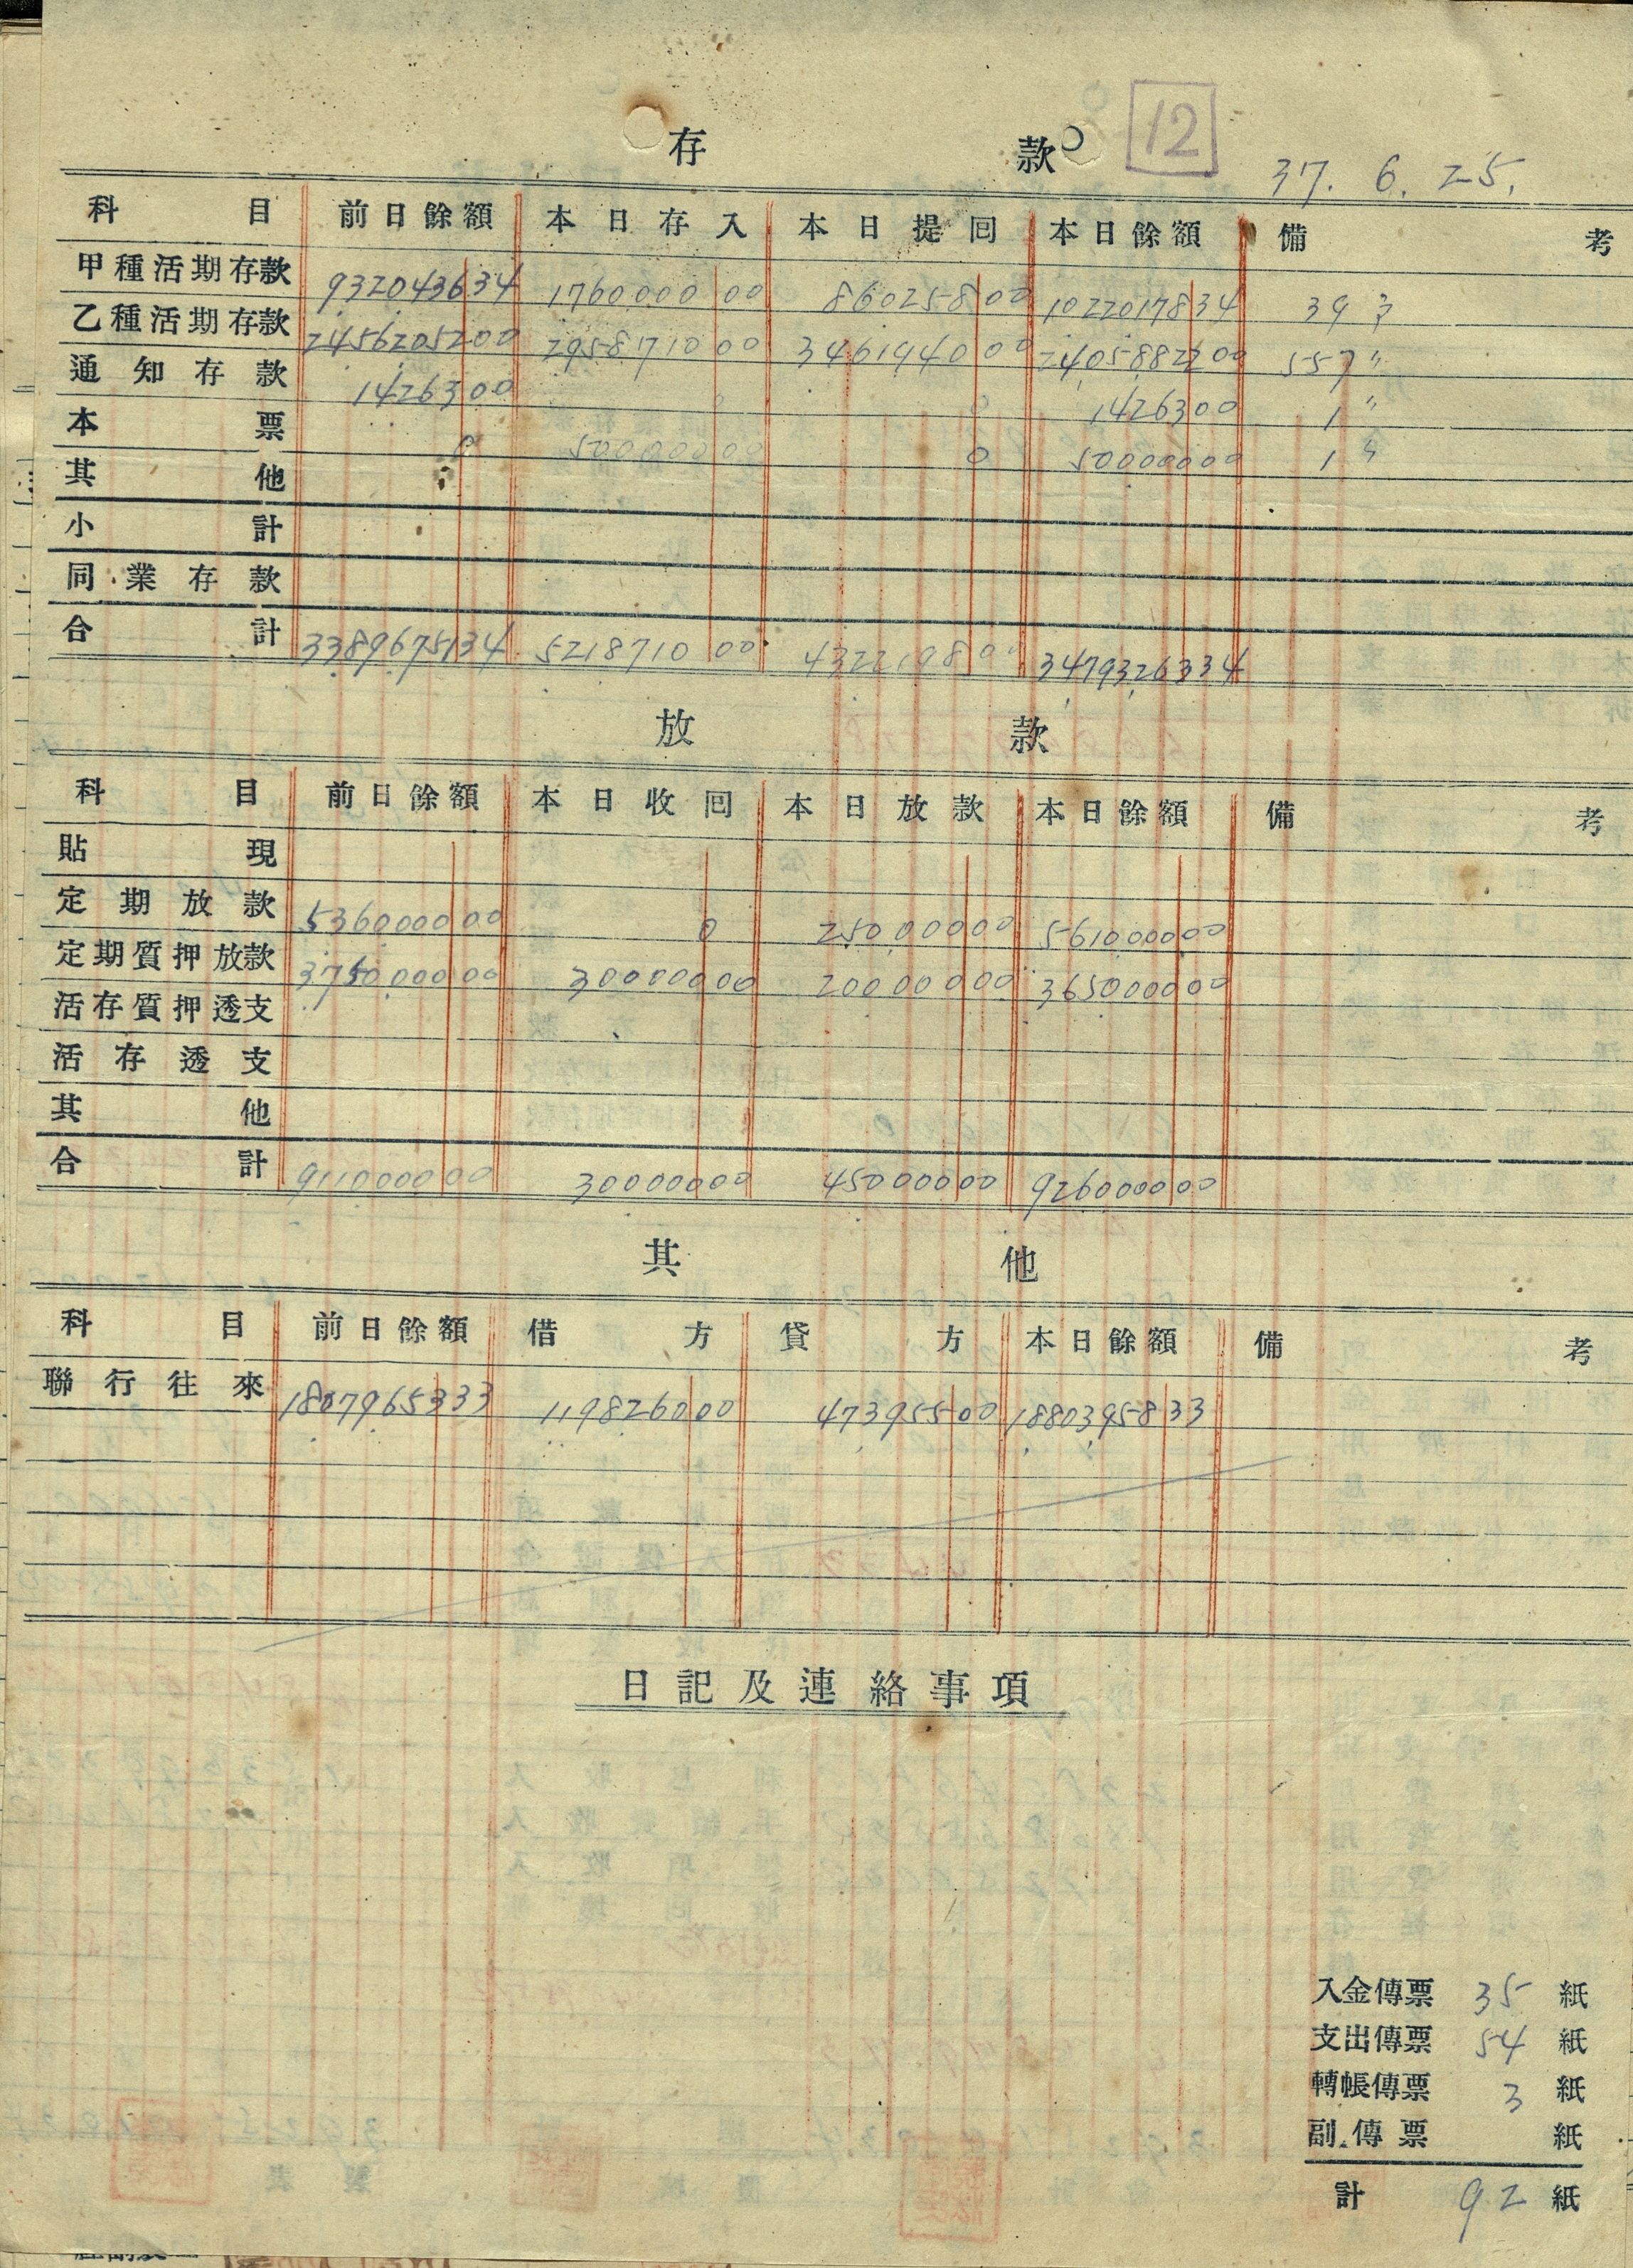 12
存款
37. 6. 25.
科目 前日餘額 本日存入 本日提回 本日餘額 備考
甲種活期存款 9320436 34 1760000 00 860258 00 10220178 34 39 戶
乙種活期存款 24562052 00 2958710 00 3461940 00 24058822 00 557 〃
通知存款 14263 00 0 0 14263 00 1 〃
本票 0 500000 00 0 500000 00 1 〃
其他
小計
同業存款
合計 33896751 34 5218710 00 4322198 00 34793263 34
放款
科目 前日餘額 本日收回 本日放款 本日餘額 備考
貼現
定期放款 5360000 00 0 250000 00 5610000 00
定期質押放款 3750000 00 300000 00 200000 00 3650000 00
活存質押透支
活存透支
其他
合計 9110000 00 300000 00 450000 00 9260000 00
其他
科目 前日餘額 借方 貸方 本日餘額 備考
聯行往來 18079653 33 1198260 00 473955 00 18803958 33
日記及連絡事項
入金傳票 35 紙
支出傳票 54 紙
轉帳傳票 3 紙
副傳票 紙
計 92 紙